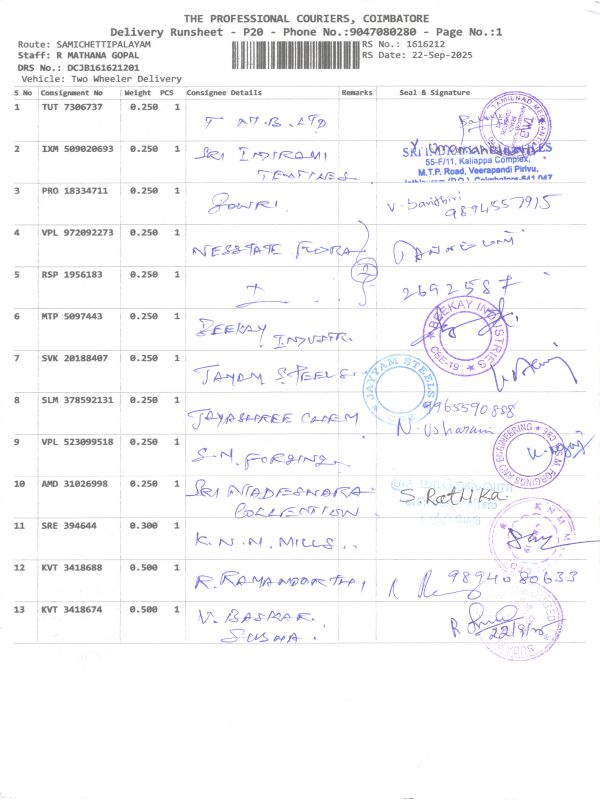 THE PROFESSIONAL COURIERS, COIMBATORE
Delivery Runsheet - P20 - Phone No.:9047080280 - Page No.:1
Route: SAMICHETTIPALAYAM RS No.: 1616212
Staff: R MATHANA GOPAL RS Date: 22-Sep-2025
DRS No.: DCJB161621201
Vehicle: Two Wheeler Delivery
S No Consignment No Weight PCS Consignee Details Remarks Seal & Signature
1 TUT 7306737 0.250 1 T M.B. LTD
2 IXM 509020693 0.250 1 SRI
55-F/11, Kaliappa Complex,
M.T.P. Road, Veerapandi Pirivu,
3 PRO 18334711 0.250 1 GOWRI. 9894557915
4 VPL 972092273 0.250 1 NESSTATE FLORA
5 RSP 1956183 0.250 1 2 2692587
6 MTP 5097443 0.250 1 BEEKAY INDUSTR.
BEEKAY INDUSTRIES CBE-19
7 SVK 20188407 0.250 1 JAYAM STEELS
JAYYAM STEELS
8 SLM 378592131 0.250 1 JAYASHREE CHEM 9965590888
N. Usharani
9 VPL 523099518 0.250 1 S.N. FORGING
10 AMD 31026998 0.250 1 SRI S. Rathika
COLLENTION
11 SRE 394644 0.300 1 K.N.M. MILLS..
12 KVT 3418688 0.500 1 R. RAMAMOORTHI 9894080633
13 KVT 3418674 0.500 1 V. BASKAR
SUBHA. 22/9/25